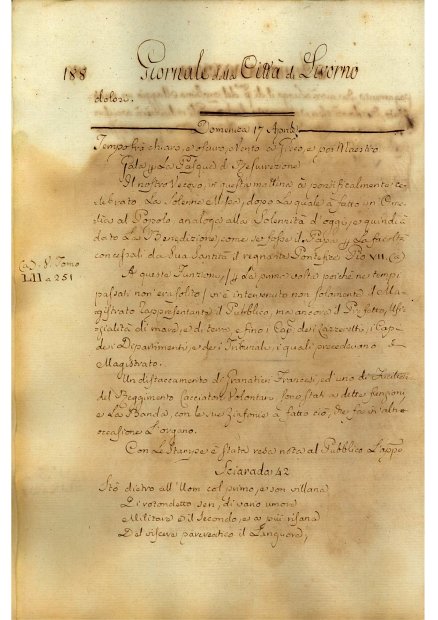 188 Giornale della Città di Livorno
dolore.
Domenica 17 Aprile
Tempo frà chiaro, e oscuro, Vento a Greco, e poi Maestro
Gala Pasqua di Resurrezione
Il nostro Vescovo, in questa mattina à pontificalmente ce-
lebrato la Solenne Messa, dopo la quale à fatto un
al Popolo, analoga alla Solennità d'oggi, e quindi à
dato la Benedizione, come se fosse il Papa la facoltà
concessali da Sua Santità il regnante Pontefice Pio VII. (a)
(a) V. Tomo
LII a 251
A questa Funzione, la prima volta poichè nei tempi
passati non era solito vi è intervenuto non solamente il Ma-
gistrato rappresentante il Pubblico, ma ancora il Prefetto, Uffi-
cialità di mare, e di terra e fino i Cap. dei Lazzeretti, i Capi
dei Dipartimenti, e dei Tribunali, i quali precedevano il
Magistrato.
Un distaccamento di Granatieri Francesi, ed uno di Fucilieri
del Reggimento Cacciatori Volontari sono stati a dette funzioni
e la Banda, con le sue Sinfonie à fatto ciò, che fa in altre
occasioni l'organo.
Con le Stampe è stata resa nota al Pubblico l'appo
Sciarada 42
Stò dietro all'Uom col primo, e son villana
Di rotondetto sen, di vano umore
Militare è il secondo, e a più risana
Del viscere il languore,